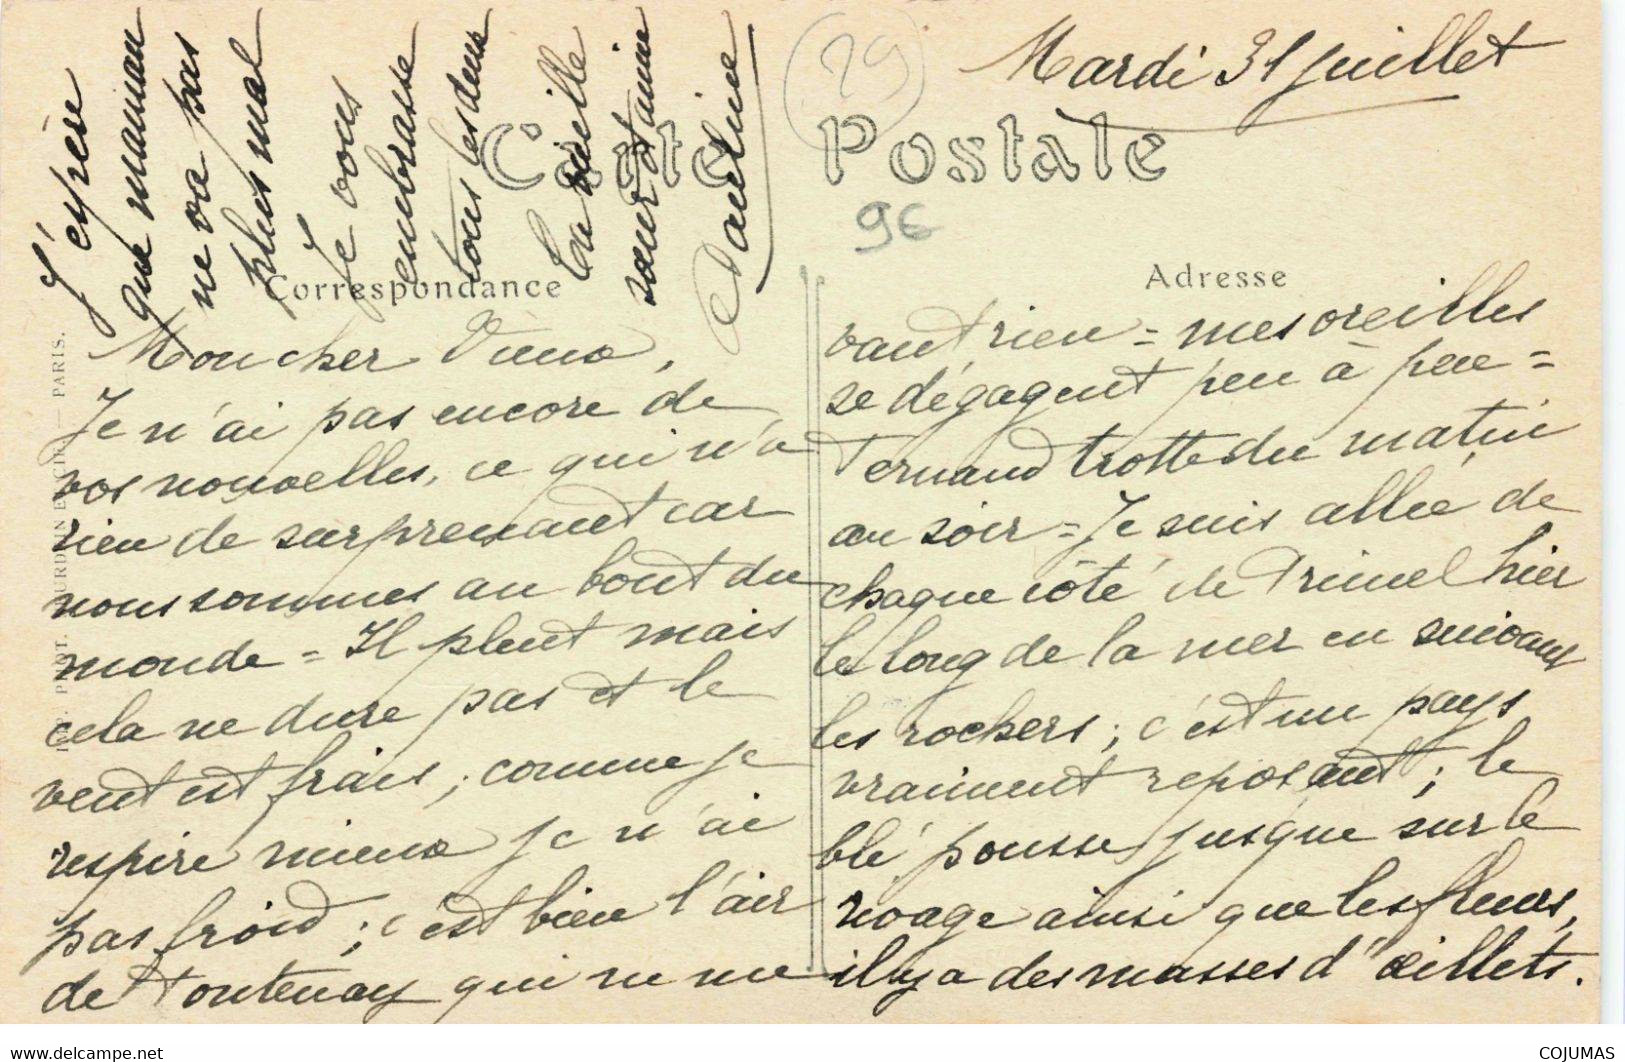 Mardi 31 juillet
29
Carte Postale
96
Correspondance
Adresse
Mon cher Vieux,
Je n'ai pas encore de
vos nouvelles, ce qui n'a
rien de surprenant car
nous sommes au bout du
monde = Il pleut mais
cela ne dure pas et le
vent est frais ; comme je
respire mieux je n'ai
pas froid ; c'est bien l'air
de Fontenay qui ne me
vaut rien = mes oreilles
se dégagent peu à peu =
Fernand trotte du matin
au soir = Je suis allée de
chaque côté de Primel hier
le long de la mer en suivant
les rochers ; c'est un pays
vraiment reposant ; le
blé pousse jusque sur le
rivage ainsi que les fleurs,
il y a des masses d'œillets.
J'espère
que maman
ne va pas
plus mal
Je vous
embrasse
tous les deux
Ta vieille
sœur
Pauline
PARIS.
COJUMAS
https://www.delcampe.net